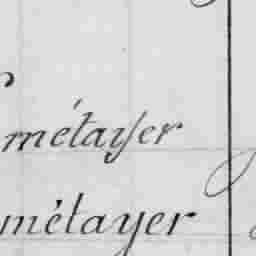 métayer
métayer